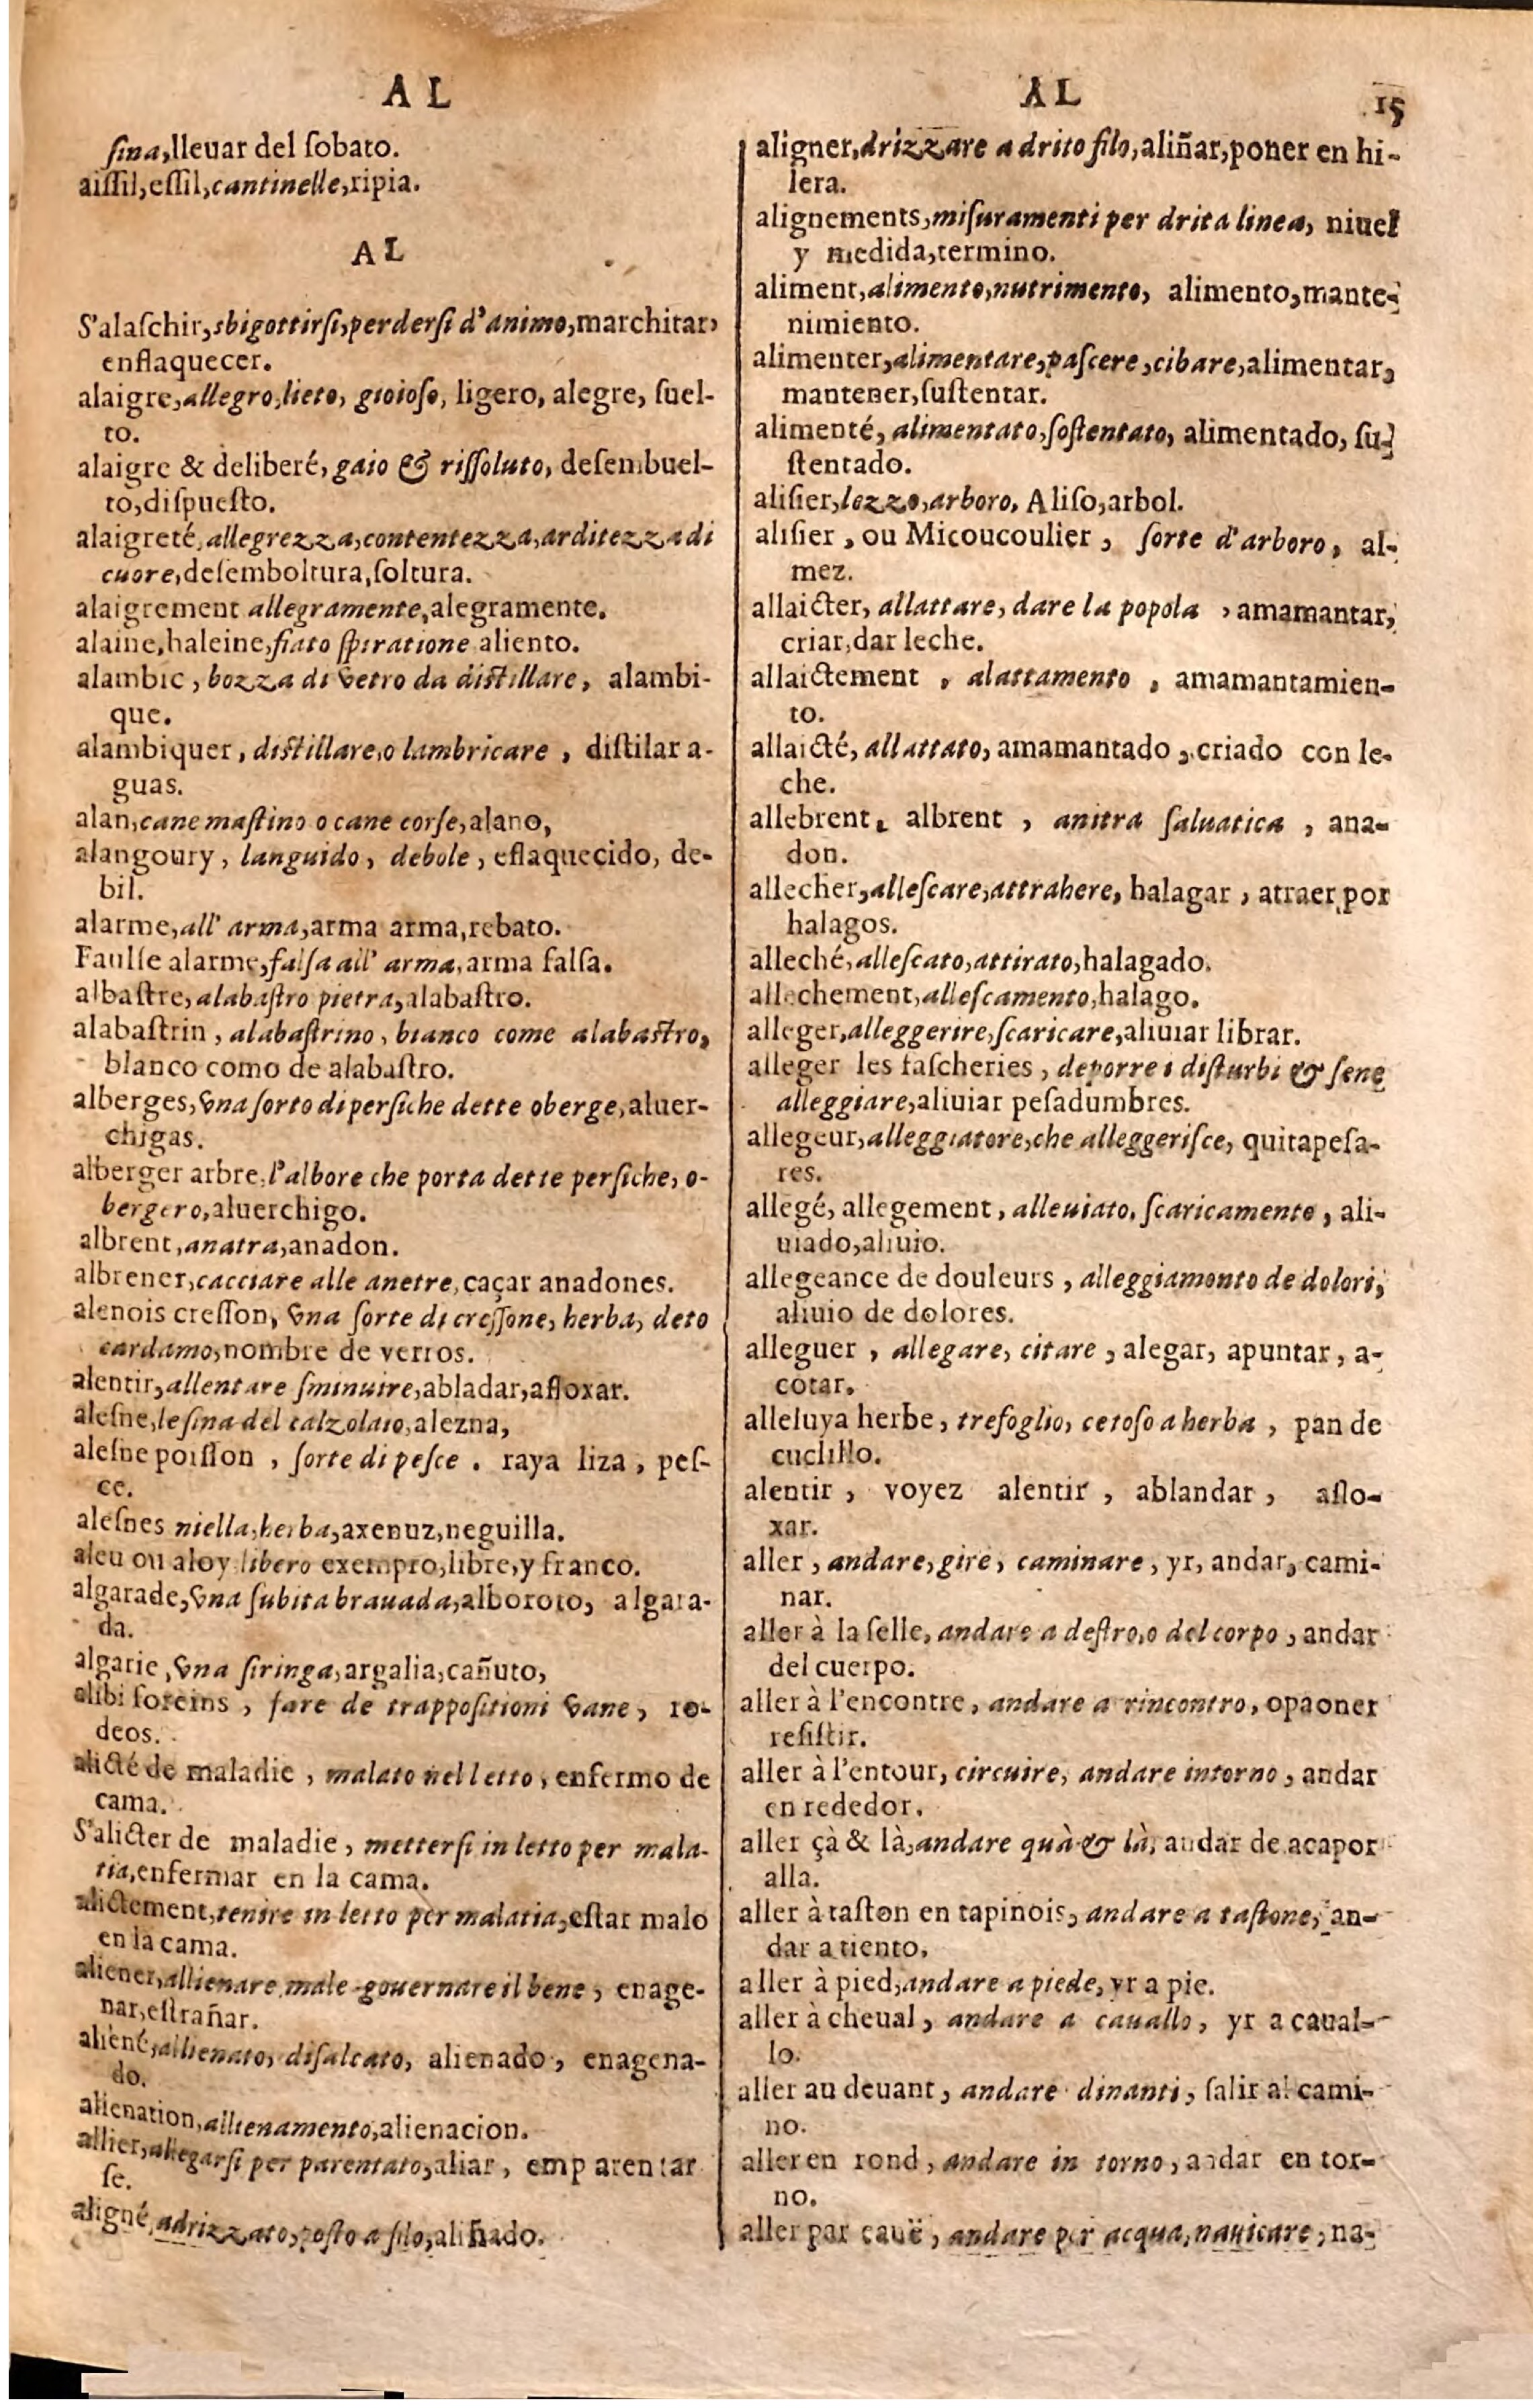 AL
ſina,lleuar del ſobato.
aiſſil,eſſil,cantinelle,ripia.
AL
S'alaſchir,sbigottirſi,perderſi d'animo,marchitar,
enflaquecer.
alaigre,allegro,lieto, gioioſo, ligero, alegre, ſuel-
to.
alaigre & deliberé,gaio & riſſoluto, deſembuel-
to,diſpueſto.
alaigreté,allegrezza,contentezza,arditezza di
cuore,deſemboltura,ſoltura.
alaigrement allegramente,alegramente.
alaine,haleine,fiato ſpiratione aliento.
alambic, bozza di vetro da diſtillare, alambi-
que.
alambiquer, diſtillare,o lambricare, diſtilar a-
guas.
alan,cane maſtino o cane corſe,alano,
alangoury, languido, debole, eflaquecido, de-
bil.
alarme,all' arma,arma arma,rebato.
Faulſe alarme,falſa all' arma,arma falſa.
albaſtre,alabaſtro pietra,alabaſtro.
alabaſtrin, alabaſtrino, bianco come alabaſtro,
blanco como de alabaſtro.
alberges,vna ſorto di perſiche dette oberge,aluer-
chigas.
alberger arbre,l'albore che porta dette perſiche, o-
bergero,aluerchigo.
albrent,anatra,anadon.
albrener,cacciare alle anetre,caçar anadones.
alenois creſſon, vna ſorte di creſſone, herba, deto
cardamo,nombre de verros.
alentir,allentare ſminuire,abladar,afloxar.
aleſne,leſina del calzolaio,alezna,
aleſne poiſſon, ſorte di peſce. raya liza, peſ-
ce.
aleſnes niella,herba,axenuz,neguilla.
aleu ou aloy libero exempro,libre,y franco.
algarade,vna ſubita brauada,alboroto, algara-
da.
algarie,vna ſiringa,argalia,cañuto,
alibi foreins, fare de trappoſitioni vane, ro-
deos.
alicté de maladie, malato nel letto, enfermo de
cama.
S'alicter de maladie, metterſi in letto per mala-
tia,enfermar en la cama.
alictement,tenire in letto per malatia,eſtar malo
en la cama.
aliener,allienare male gouernare il bene, enage-
nar,eſtrañar.
aliené,allienato, diſalcato, alienado, enagena-
do.
alienation,allienamento,alienacion.
allier,allegarſi per parentato,aliar, emp arentar
ſe.
aligné,adrizzato,poſto a filo,aliñado.
AL 15
aligner,drizzare a drito filo,aliñar,poner en hi-
lera.
alignements,miſuramenti per drita linea, niuel
y medida,termino.
aliment,alimento,nutrimento, alimento,mante-
nimiento.
alimenter,alimentare,paſcere,cibare,alimentar,
mantener,ſuſtentar.
alimenté, alimentato,ſoſtentato, alimentado, ſu-
ſtentado.
aliſier,lezzo,arboro, Aliſo,arbol.
aliſier, ou Micoucoulier, ſorte d'arboro, al-
mez.
allaicter, allattare, dare la popola, amamantar,
criar,dar leche.
allaictement, alattamento, amamantamien-
to.
allaicté, allattato, amamantado, criado con le-
che.
allebrent, albrent, anitra ſaluatica, ana-
don.
allecher,alleſcare,attrahere, halagar, atraer por
halagos.
alleché,alleſcato,attirato,halagado.
allechement,alleſcamento,halago.
alleger,alleggerire,ſcaricare,aliuiar librar.
alleger les faſcheries, deporre i diſturbi & ſene
alleggiare,aliuiar peſadumbres.
allegeur,alleggiatore,che alleggeriſce, quitapeſa-
res.
allegé, allegement, alleuiato, ſcaricamento, ali-
uiado,aliuio.
allegeance de douleurs, alleggiamonto de dolori,
aliuio de dolores.
alleguer, allegare, citare, alegar, apuntar, a-
cotar.
alleluya herbe, trefoglio, cetoſo a herba, pan de
cuclillo.
alentir, voyez alentir, ablandar, aflo-
xar.
aller, andare, gire, caminare, yr, andar, cami-
nar.
aller à la ſelle, andare a deſtro,o del corpo, andar
del cuerpo.
aller à l'encontre, andare a rincontro, opaoner
reſiſtir.
aller à l'entour, circuire, andare intorno, andar
en rededor.
aller çà & là,andare quà & là, andar de acapor
alla.
aller à taſton en tapinois, andare a taſtone, an-
dar a tiento.
aller à pied,andare a piede, yr a pie.
aller à cheual, andare a cauallo, yr a caual-
lo.
aller au deuant, andare dinanti, ſalir al cami-
no.
aller en rond, andare in torno, andar en tor-
no.
aller par eauë, andare per acqua, nauicare, na-